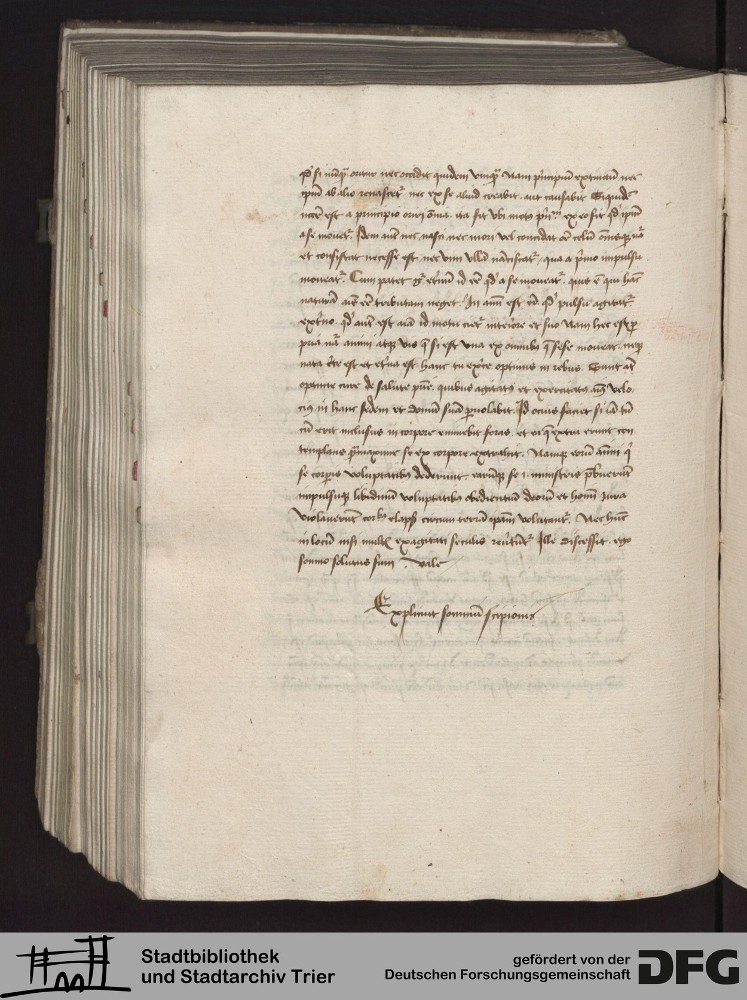 qd si nūqꝫ oritur nec occidit quidem vmqꝫ Nam principiū extinctū nec
ipm̄ ab alio renascetʳ nec ex se aliud creabit Siquidē
necesse est a principio oriri oīa ita fit vti motus ex eo sit qd ipm̄
a se mouetʳ Idem autē nec nasci nec mori vel concidat oē celū
et consistat necesse est nec vim vllā nanciscatʳ qua a primo impulsu
moueatʳ Cum pateat gͦ eternū id eē qd a se moueatʳ quis ē qui hāc
naturā esse tributam neget In anim est eī qd pulsu agitatʳ
externo qd autē est id motu cietʳ interiore et suo Nam hec est p
pria nā animi atqꝫ vis que si est vna ex omnibꝫ que sese moueat neqꝫ
nata certe est et eterna est hanc tu exerce optimis in rebus Sunt at
optime cure de salute patrie quibus agitatus et exercitatus velo
cius in hanc sedem et domū suā peruolabit Id ocius faciet si iā tū
cū erit inclusus in corpore eminebit foras et ea que extra erunt con
templans maxime se ex corpore extrahit Namqꝫ eorū animi qͥ
se corporis voluptatibꝫ dediderunt earūqꝫ se ministros prebuerūt
impulsuqꝫ libidinū voluptatibꝫ obedientiū deorū et hominū iura
violauerūt corꝫbꝫ elapsi circum terrā ipam volutantʳ Nec hūc
in locū nisi multis exagitati seculis reuertūtʳ Ille discessit ego
sonno solutus sum Vale
Explicuit somniū scipionis
Stadtbibliothek
und Stadtarchiv Trier
gefördert von der
Deutschen Forschungsgemeinschaft
DFG